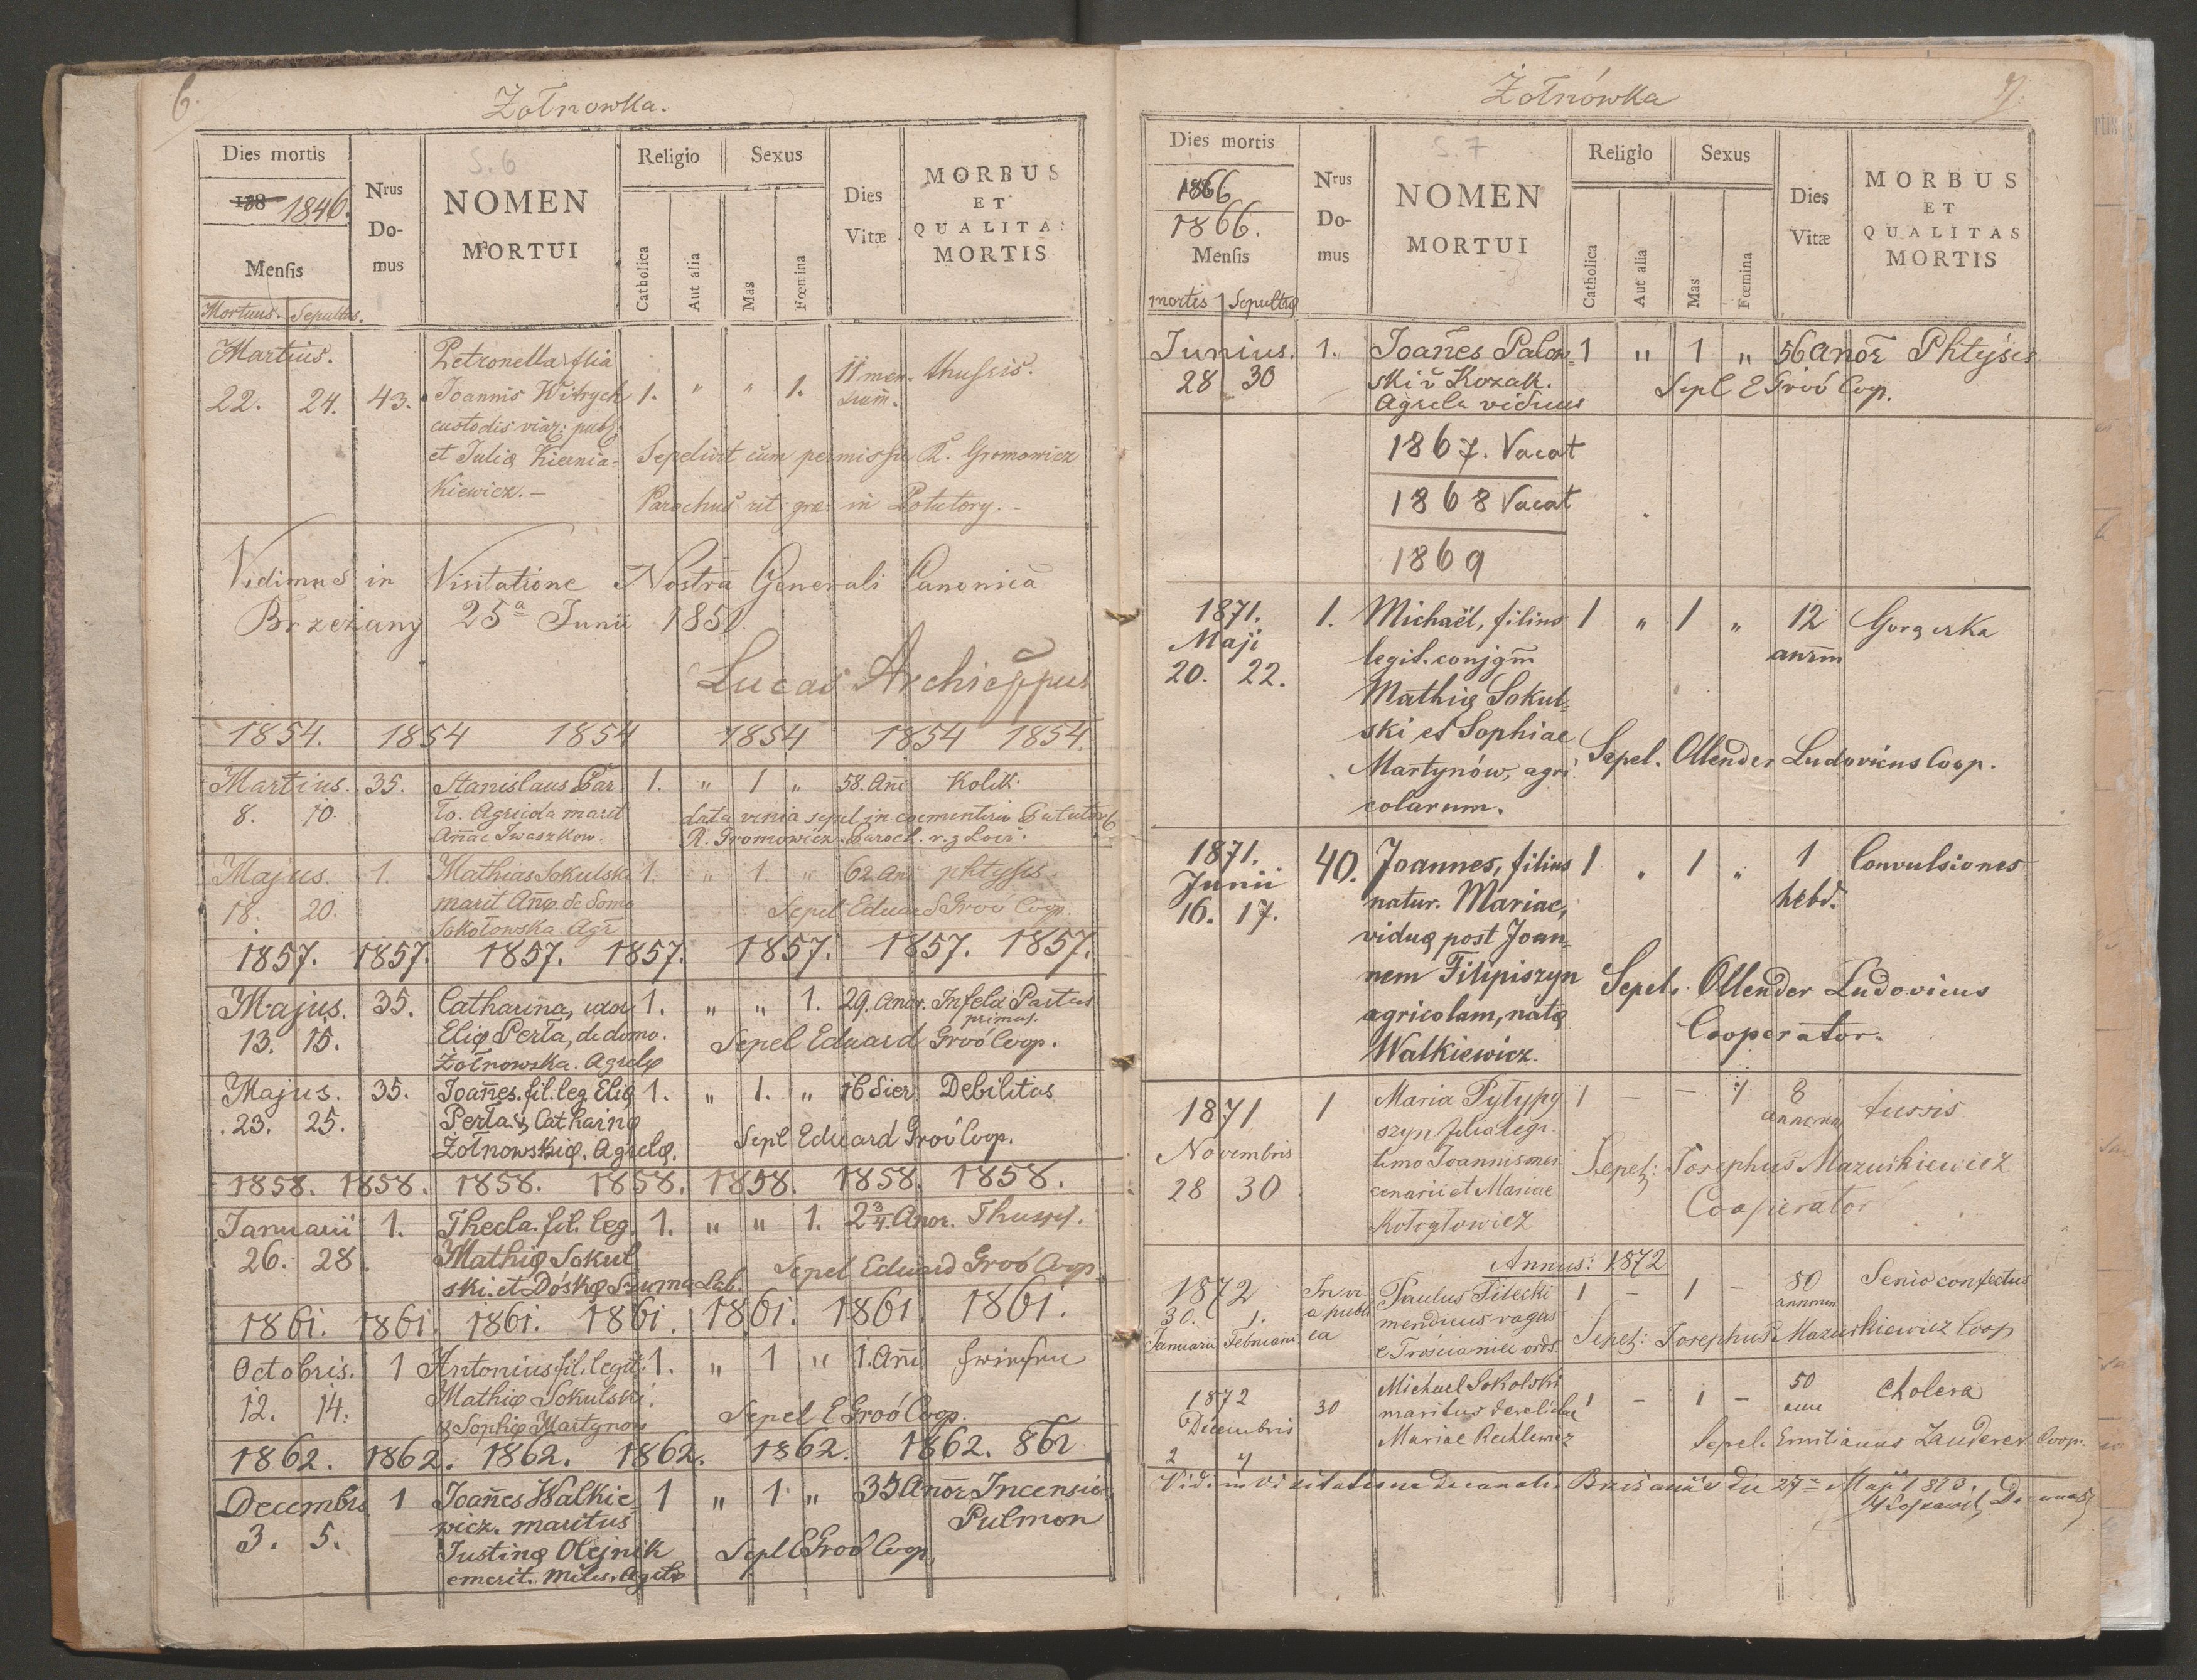 6.
Żołnowka.
S. 6
Dies mortis
188 1846.
Mensis
Mortuus. Sepultus.
Nrus Do- mus
NOMEN
MORTUI
Religio
Catholica
Aut alia
Sexus
Mas
Fœmina
Dies Vitæ
MORBUS
ET
QUALITAS
MORTIS
Martius.
22. 24. 43.
Petronella filia
Joannis Witrych
custodis viar: publ:
et Julię Kiernia-
kiewicz.—
1. " " 1. 11 men- sium. thussis.
Sepelivit cum permissu R. Gromowicz
Parochus rit: græ: in Potutory.-
Vidimus in Visitatione Nostra Generali Canonica
Brzeżany 25a Junii 185
Lucas Archieppus
1854. 1854 1854 1854 1854 1854.
Martius. 35. Stanislaus Bar 1. " 1 " 58. Ani Kolik
8. 10. To. Agricola marit
Annae Iwaszkow.
data venia sepel in coementerio Potutory
R. Gromowicz Paroch. r. g
Majus. 1. Mathias Sokulsk 1. " 1. " 62 Ani phtysis.
18. 20. marit Annę de domo
Sokołowska. Agr
Sepel Eduard Groó Coop.
1857. 1857. 1857. 1857. 1857. 1857. 1857.
Majus. 35. Catharina, uxor 1. " " 1. 29. Anor. Infelx Partus
primus.
13. 15. Elię Perła, de domo.
Żołnowska. Agrclę
Sepel Eduard Groó Coop.
Majus. 35. Joañes. fil. leg. Elię 1. " 1. " 16 dier. Debilitas
23. 25. Perła. & Catharinę
Żołnowskię. Agrclę.
Sepl Eduard Groó Coop.
1858. 1858. 1858. 1858. 1858. 1858. 1858.
Januarii 1. Thecla. fil. leg. 1. " " 1. 2 3/4. Anor. Thussis.
26. 28. Mathię Sokul
ski. et Dóskę Burma Lab.
Sepel Eduard Groó Coop
1861. 1861. 1861. 1861. 1861. 1861. 1861.
Octobris. 1 Antonius fil. legit. 1. " 1 " 1. Ani
12. 14. Mathię Sokulski.
& Sophię Martynow
Sepel E Groó Coop.
1862. 1862. 1862. 1862. 1862. 1862. 862
Decembris 1 Joañes Walkie 1 " 1 " 35 Anor. Incensio
Pulmon
3. 5. wicz. maritus
Justinę Olejnik
emerit. miles. Agclę
Sepl E Groó Coop.
7.
Żołnówka
S. 7
Dies mortis
1866
1866.
Mensis
mortis Sepultę
Nrus Do- mus
NOMEN
MORTUI
Religio
Catholica
Aut alia
Sexus
Mas
Fœmina
Dies Vitæ
MORBUS
ET
QUALITAS
MORTIS
Junius. 1. Joañes Palow- 1 " 1 " 56 anor Phtysis
28 30 ski v Kozak.
Agrcla viduus
Sepl E Groó Coop.
1867. Vacat
1868 Vacat
1869
1871.
Maji
20. 22.
1. Michaël, filius 1 " 1 " 12 anrm Gorączka
legit. conjgm
Mathię Sokul-
ski et Sophiae
Martynów, agri
colarum.
Sepel. Ollender Ludovicus Coop.
1871.
Junii
16. 17.
40. Joannes, filius 1 " 1 " 1 hebd. Convulsiones
natur. Mariae,
viduę post Joan-
nem Filipiszyn
agricolam, natę
Walkiewicz.
Sepel. Ollender Ludovicus
Cooperator.
1871
Novembris
28 30
1 Maria Pylypy 1 – – 1 8 annorum tussis
szyn filia legi
timo Joannis mer
cenarii et Mariae
Kołogłowicz
Sepel: Josephus Mazurkiewicz
Cooperator
Annus: 1872
1872
30. 1.
Januarii Februarii
In vi a publi ca
Paulus Pilecki 1 – 1 – 50 annorum Senio confectus
mendicus vagus
e Trościaniec ords.
Sepel: Josephus Mazurkiewicz Coop
1872
Decembris
2 4
30
Michael Sokolski 1 – 1 – 50 Cholera
maritus derelictae
Mariae Rechlewicz
Sepel. Emilianus Zauderer Coop.
Vidi in visitatione decanali Brzezanis die 27 Maji 1873.